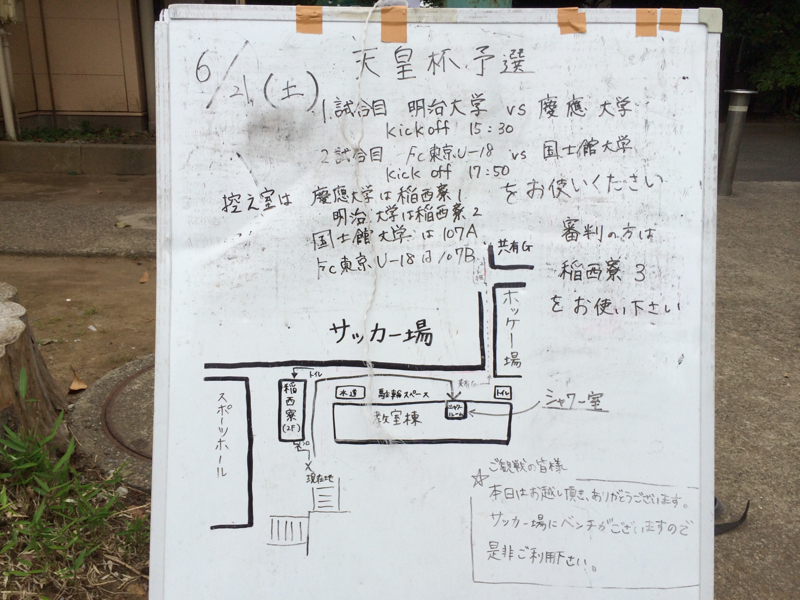 6/21(土) 天皇杯予選
1.試合目 明治大学 vs 慶應大学
kick off 15:30
2.試合目 Fc東京U-18 vs 国士館大学
kick off 17:50
控え室は 慶應大学は稲西寮1 をお使いください
明治大学は稲西寮2
国士館大学は107A
Fc東京U-18は107B
審判の方は
稲西寮3
をお使い下さい
共有G
ホッケー場
サッカー場
トイレ
稲西寮
(2F)
水道
駐輪スペース
トイレ
シャワールーム
シャワー室
教室棟
スポーツホール
現在地
ご観戦の皆様
☆本日はお越し頂き、ありがとうございます。
サッカー場にベンチがございますので
是非ご利用下さい。